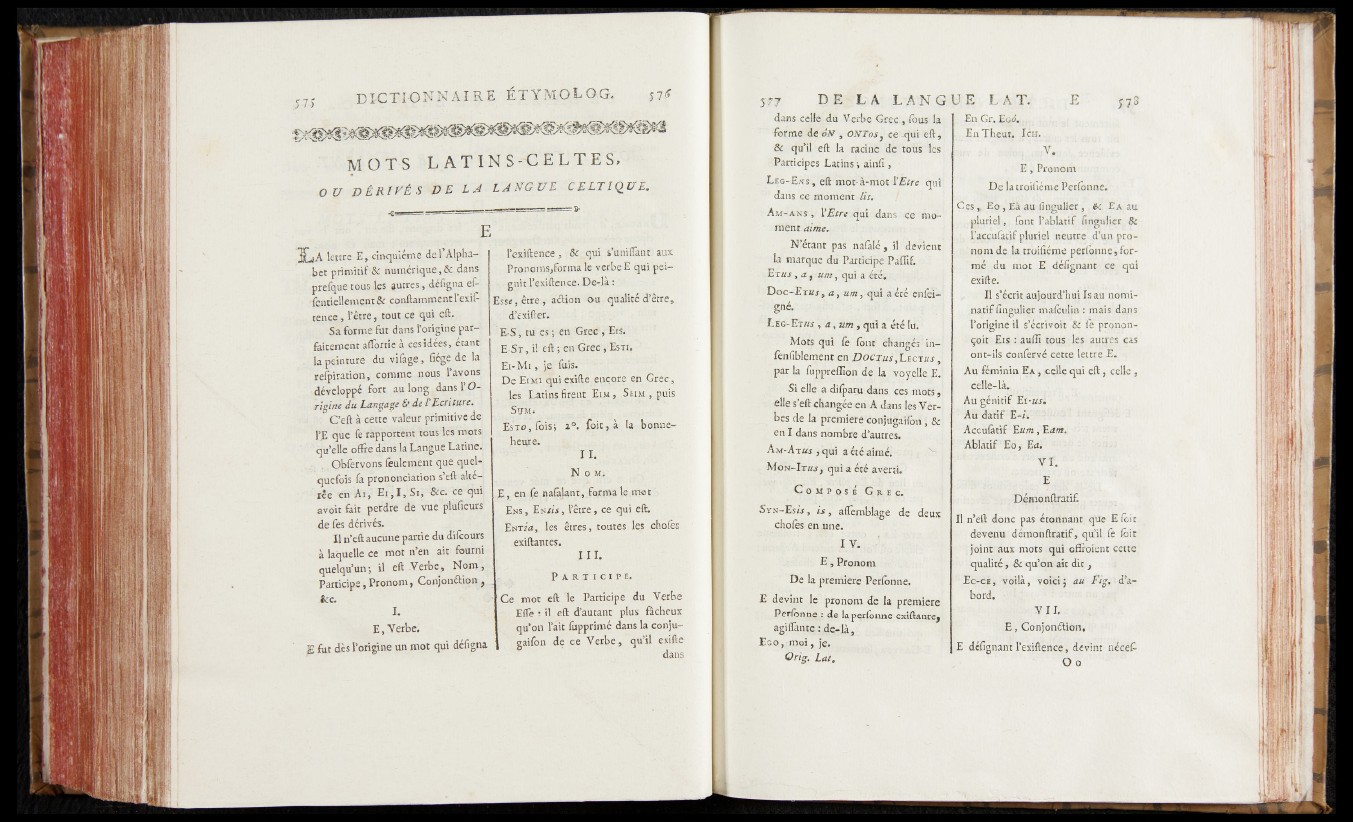 575 DICTIONNAIRE ÉTYMOLOG. 576
MOTS LATINS-CELTES,
OU DÉRIVÉS DE LA LANGUE CELTIQUE.
E
LA lettre E, cinquiéme de l'Alpha-
bet primitif & numérique, & dans
preſque tous les autres, déſigna eſ-
ſentiellement & conſtamment l'exiſ-
tence, l'être, tout ce qui eſt.
Sa forme fut dans l'origine par-
faitement aſſortie à ces idées, étant
la peinture du viſage, ſiége de la
reſpiration, comme nous l'avons
développé fort au long dans l'O-
rigine du Langage & de l'Ecriture.
C'eſt à cette valeur primitive de
l'E que ſe rapportent tous les mots
qu'elle offre dans la Langue Latine.
Obſervons ſeulement que quel-
quefois ſa prononciation s'eſt alté-
rée en AI, EI, I, SI, &c. ce qui
avoit fait perdre de vue pluſieurs
de ſes dérivés.
Il n'eſt aucune partie du diſcours
à laquelle ce mot n'en ait fourni
quelqu'un; il eſt Verbe, Nom,
Participe, Pronom, Conjonction,
&c.
I.
E, Verbe.
E fut dès l'origine un mot qui déſigna
l'exiſtence, & qui s'uniſſant aux
Pronoms, forma le verbe E qui pei-
gnit l'exiſtence. De-là :
Esse, être, action ou qualité d'être,
d'exiſter.
E-S, tu es; en Grec, EIS.
E-ST, il eſt; en Grec, ESTI.
EI-MI, je ſuis.
De EIMI qui exiſte encore en Grec,
les Latins firent EIM, SEIM, puis
SUM.
ESTO, ſois; 2°. ſoit, à la bonne-
heure.
II.
NOM.
E, en ſe naſalant, forma le mot
ENS, ENtis, l'être, ce qui eſt.
ENTia, les êtres, toutes les choſes
exiſtantes.
III.
PARTICIPE.
Ce mot eſt le Participe du Verbe
Eſſe : il eſt d'autant plus fâcheux
qu'on l'ait ſupprimé dans la conju-
gaiſon de ce Verbe, qu'il exiſte
dans
577 DE LA LANGUE LAT. E 578
dans celle du Verbe Grec, ſous la
forme de ôN, ONTos, ce qui eſt,
& qu'il eſt la racine de tous les
Participes Latins; ainſi,
LEG-ENS, eſt mot-à-mot l'Etre qui
dans ce moment lit.
AM-ANS, l'Etre qui dans ce mo-
ment aime.
N'étant pas naſalé, il devient
la marque du Participe Paſſif.
ETUS, a, um, qui a été.
DOC-ETUS, a, um, qui a été enſei-
gné.
LEG-ETUS, a, um, qui a été lu.
Mots qui ſe ſont changés in-
ſenſiblement en DOCTUS, LECTUS,
par la ſuppreſſion de la voyelle E.
Si elle a diſparu dans ces mots,
elle s'eſt changée en A dans les Ver-
bes de la premiere conjugaiſon, &
en I dans nombre d'autres.
AM-ATUS, qui a été aimé.
MON-ITUS, qui a été averti.
COMPOSÉ GREC.
SYN-ESIS, is, aſſemblage de deux
choſes en une.
IV.
E, Pronom
De la premiere Perſonne.
E devint le pronom de la premiere
Perſonne : de la perſonne exiſtante,
agiſſante : de-là,
EGO, moi, je.
Orig. Lat.
En Gr. Egó.
En Theut. ICH.
V.
E, Pronom
De la troiſiéme Perſonne.
Ces, EO, EA au ſingulier, & EA au
pluriel, ſont l'ablatif ſingulier &
l'accuſatif pluriel neutre d'un pro-
nom de la troiſiéme perſonne, for-
mé du mot E déſignant ce qui
exiſte.
Il s'écrit aujourd'hui IS au nomi-
natif ſingulier maſculin : mais dans
l'origine il s'écrivoit & ſe pronon-
çoit EIS : auſſi tous les autres cas
ont-ils conſervé cette lettre E.
Au féminin EA, celle qui eſt, celle,
celle-là.
Au génitif EI-us.
Au datif E-i.
Accuſatif Eum, Eam.
Ablatif Eo, Ea.
VI.
E
Démonſtratif.
Il n'eſt donc pas étonnant que E ſoit
devenu démonſtratif, qu'il ſe ſoit
joint aux mots qui offroient cette
qualité, & qu'on ait dit,
EC-CE, voilà, voici; au Fig. d'a-
bord.
VII.
E, Conjonction.
E déſignant l'exiſtence, devint néceſ-
O o